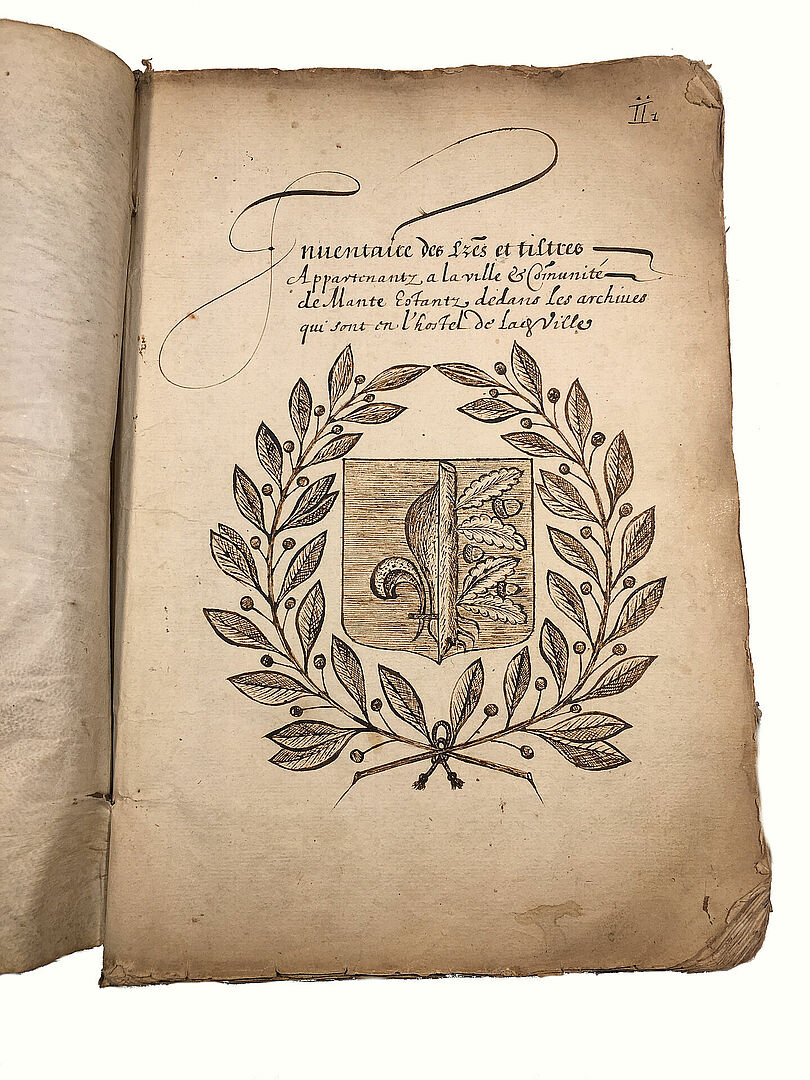 II 1
Inuentaire des Lr̃es et tiltres
Appartenantz a la ville & Com̃unité
de Mante Estantz dedans les archiues
qui sont en l'hostel de lad Ville